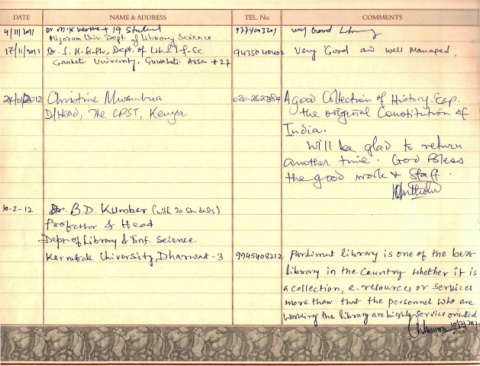 DATE NAME & ADDRESS TEL. No. COMMENTS
4/11/2011 Dr M.K. Verma + 19 Student very Good Library
Mizoram Univ. Dept. of Library Science
17/11/2011 Dr. S. Dept. of Lib. & Inf. Sc. Very Good and Well Managed.
Gauhati University, Guwahati Assam
2012 Christine A good Collection of History. Esp.
D/Head, The CPST, Kenya 020- the original Constitution of
India.
Will be glad to return
another time. God Bless
the good work & Staff.
10-2-12 Dr. B D. Kumbar (with 20 students)
Professor & Head
Dept of Library & Inf. Science
Karnatak University, Dharwad-3 9945408212 Parliament library is one of the best
library in the Country whether it is
a collection, e-resources or services
more than that the personnel who are
working the library are highly service oriented